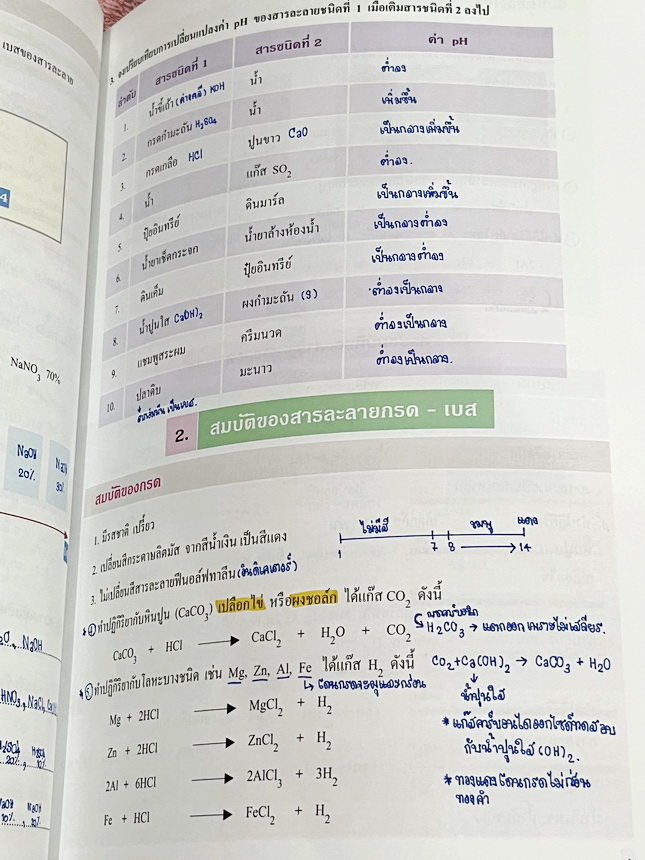 เบสของสารละลาย
4
NaNO3 70%
NaOH
20%
30%
NaOH
HNO3, NaCl,
20%
NaOH
10%
3. จงเปรียบเทียบการเปลี่ยนแปลงค่า pH ของสารละลายชนิดที่ 1 เมื่อเติมสารชนิดที่ 2 ลงไป
ลำดับ สารชนิดที่ 1 สารชนิดที่ 2 ค่า pH
1. น้ำขี้เถ้า (ด่างคลี) KOH น้ำ ต่ำลง
2. กรดกำมะถัน H2SO4 น้ำ เพิ่มขึ้น
3. กรดเกลือ HCl ปูนขาว CaO เป็นกลางเพิ่มขึ้น
4. น้ำ แก๊ส SO2 ต่ำลง.
5. ปุ๋ยอินทรีย์ ดินมาร์ล เป็นกลางเพิ่มขึ้น
6. น้ำยาเช็ดกระจก น้ำยาล้างห้องน้ำ เป็นกลางต่ำลง
7. ดินเค็ม ปุ๋ยอินทรีย์ เป็นกลางต่ำลง
8. น้ำปูนใส Ca(OH)2 ผงกำมะถัน (S) ต่ำลงเป็นกลาง
9. แชมพูสระผม ครีมนวด ต่ำลงเป็นกลาง
10. ปลาดิบ มะนาว ต่ำลงเป็นกลาง.
2. สมบัติของสารละลายกรด - เบส
สมบัติของกรด
1. มีรสชาติ เปรี้ยว
2. เปลี่ยนสีกระดาษลิตมัส จากสีน้ำเงิน เป็นสีแดง
3. ไม่เปลี่ยนสีสารละลายฟีนอล์ฟทาลีน (อินดิเคเตอร์)
ไม่มีสี ชมพู แดง
1 7 8 → 14
* 4 ทำปฏิกิริยากับหินปูน (CaCO3) เปลือกไข่ หรือผงชอล์ก ได้แก๊ส CO2 ดังนี้
CaCO3 + HCl → CaCl2 + H2O + CO2
H2CO3 → แตกออก เพราะไม่เสถียร.
* 5 ทำปฏิกิริยากับโลหะบางชนิด เช่น Mg, Zn, Al, Fe ได้แก๊ส H2 ดังนี้
↳ โดนกรดจะผุและกร่อน
Mg + 2HCl → MgCl2 + H2
Zn + 2HCl → ZnCl2 + H2
2Al + 6HCl → 2AlCl3 + 3H2
Fe + HCl → FeCl2 + H2
CO2 + Ca(OH)2 → CaCO3 + H2O
น้ำปูนใส
* แก๊สคาร์บอนไดออกไซด์ทดสอบ
กับน้ำปูนใส (OH)2.
* ทองแดงโดนกรดไม่กร่อน
ทองคำ